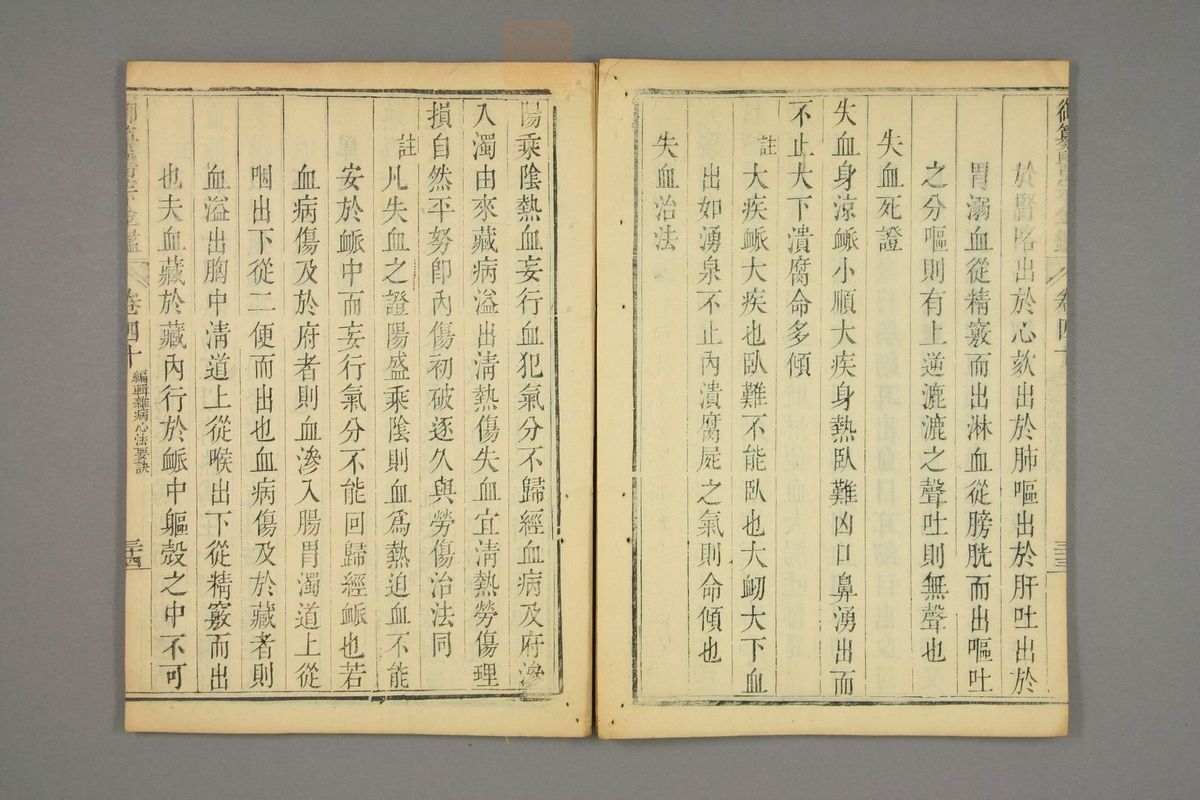 御纂醫宗金鑑 卷四十 三十三
於腎咯出於心欬出於肺嘔出於肝吐出於
胃溺血從精竅而出淋血從膀胱而出嘔吐
之分嘔則有上逆漉漉之聲吐則無聲也
失血死證
失血身涼䘑小順大疾身熱臥難凶口鼻湧出而
不止大下潰腐命多傾
註 大疾䘑大疾也臥難不能臥也大衂大下血
出如湧泉不止內潰腐屍之氣則命傾也
失血治法
陽乘陰熱血妄行血犯氣分不歸經血病及府滲
入濁由來藏病溢出淸熱傷失血宜淸熱勞傷理
損自然平努卽內傷初破逐久與勞傷治法同
註 凡失血之證陽盛乘陰則血爲熱迫血不能
安於䘑中而妄行氣分不能回歸經䘑也若
血病傷及於府者則血滲入腸胃濁道上從
咽出下從二便而出也血病傷及於藏者則
血溢出胸中淸道上從喉出下從精竅而出
也夫血藏於藏內行於䘑中軀殼之中不可
御纂醫宗金鑑 卷四十 編輯雜病心法要訣 三十四